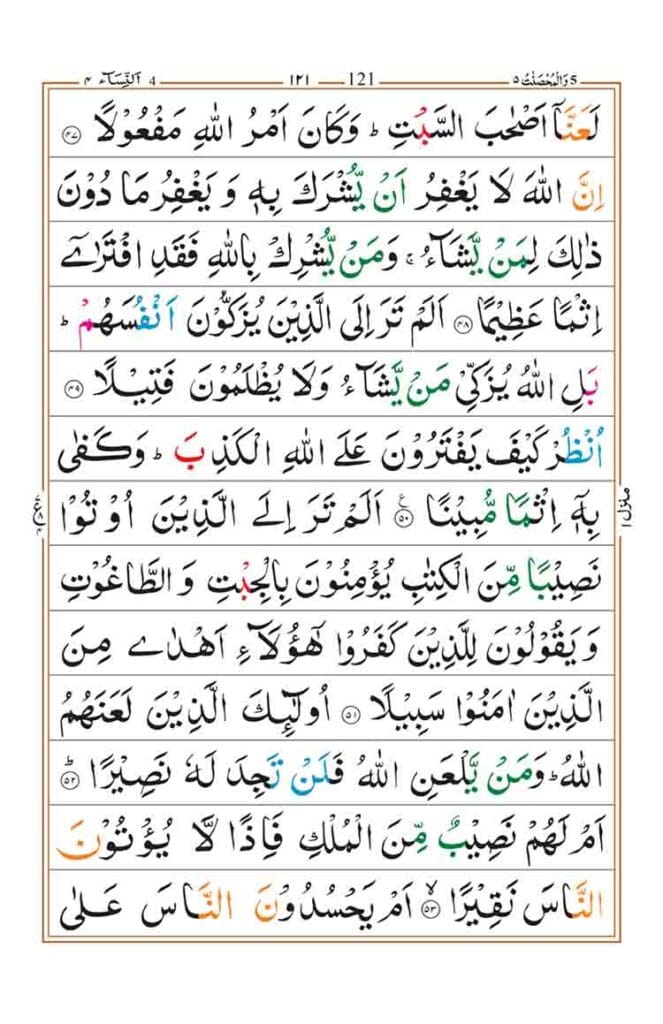 5 وَالْمُحْصَنٰتُ ۵ 121 ۱۲۱ 4 اَلنِّسَآء ۴
لَعَنَّاۤ اَصْحٰبَ السَّبْتِ ؕ وَكَانَ اَمْرُ اللّٰهِ مَفْعُوْلًا ۝۴۷
اِنَّ اللّٰهَ لَا يَغْفِرُ اَنْ يُّشْرَكَ بِهٖ وَ يَغْفِرُ مَا دُوْنَ
ذٰلِكَ لِمَنْ يَّشَآءُ ۚ وَمَنْ يُّشْرِكْ بِاللّٰهِ فَقَدِ افْتَرٰۤى
اِثْمًا عَظِيْمًا ۝۴۸ اَلَمْ تَرَ اِلَى الَّذِيْنَ يُزَكُّوْنَ اَنْفُسَهُمْ ؕ
بَلِ اللّٰهُ يُزَكِّىْ مَنْ يَّشَآءُ وَلَا يُظْلَمُوْنَ فَتِيْلًا ۝۴۹
اُنْظُرْ كَيْفَ يَفْتَرُوْنَ عَلَى اللّٰهِ الْكَذِبَ ؕ وَكَفٰى
بِهٖۤ اِثْمًا مُّبِيْنًا ۝۵۰ ع اَلَمْ تَرَ اِلَى الَّذِيْنَ اُوْتُوْا
نَصِيْبًا مِّنَ الْكِتٰبِ يُؤْمِنُوْنَ بِالْجِبْتِ وَ الطَّاغُوْتِ
وَ يَقُوْلُوْنَ لِلَّذِيْنَ كَفَرُوْا هٰۤؤُلَآءِ اَهْدٰى مِنَ
الَّذِيْنَ اٰمَنُوْا سَبِيْلًا ۝۵۱ اُولٰٓئِكَ الَّذِيْنَ لَعَنَهُمُ
اللّٰهُ ؕ وَمَنْ يَّلْعَنِ اللّٰهُ فَلَنْ تَجِدَ لَهٗ نَصِيْرًا ۝۵۲ ؕ
اَمْ لَهُمْ نَصِيْبٌ مِّنَ الْمُلْكِ فَاِذًا لَّا يُؤْتُوْنَ
النَّاسَ نَقِيْرًا ۝۵۳ ۙ اَمْ يَحْسُدُوْنَ النَّاسَ عَلٰى
منزل ۱